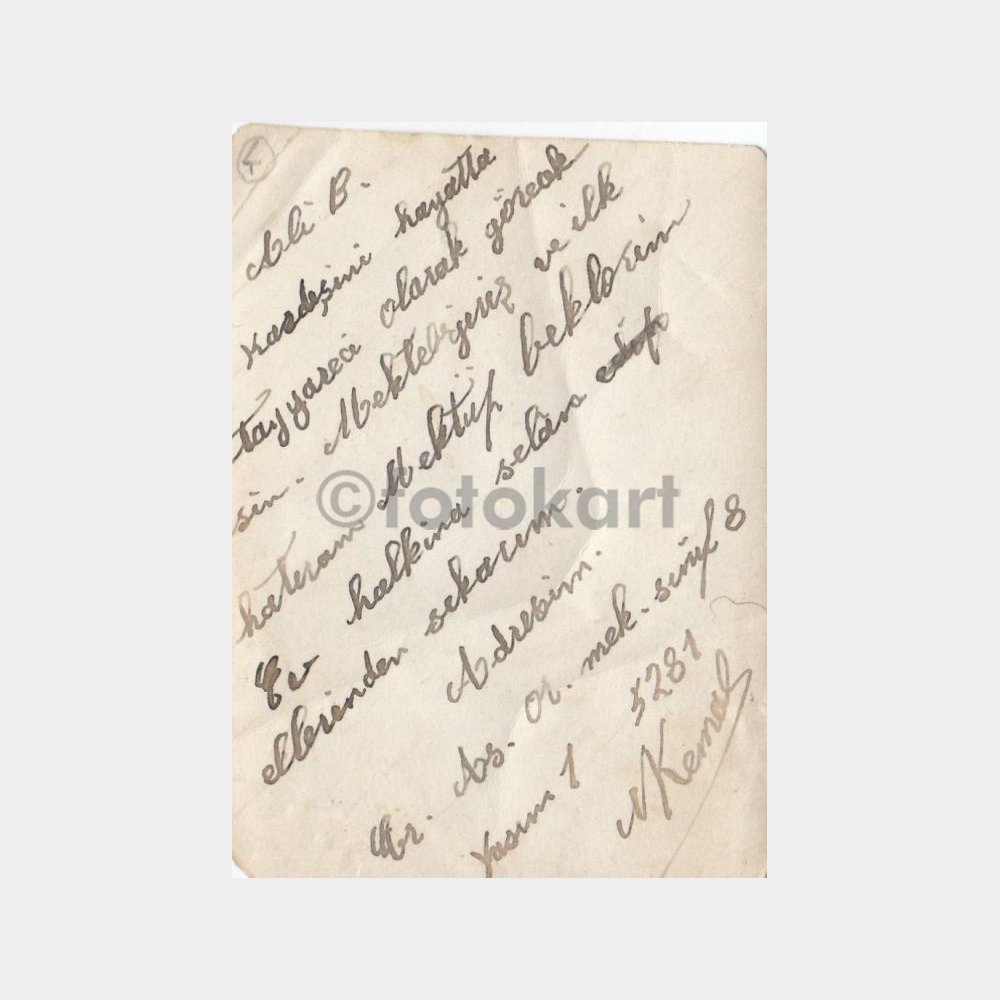 4
Ali B.
Kardeşini hayatta
tayyareci olarak görecek
sin. Mektebiniz ve ilk
hateram Mektüp beklerim
Ev halkına selâm edip
ellerinden sıkarım.
Adresim.
Er. As. or. mek. sınıf 8
Kısım 1 5281
N Kemal
©fotokart